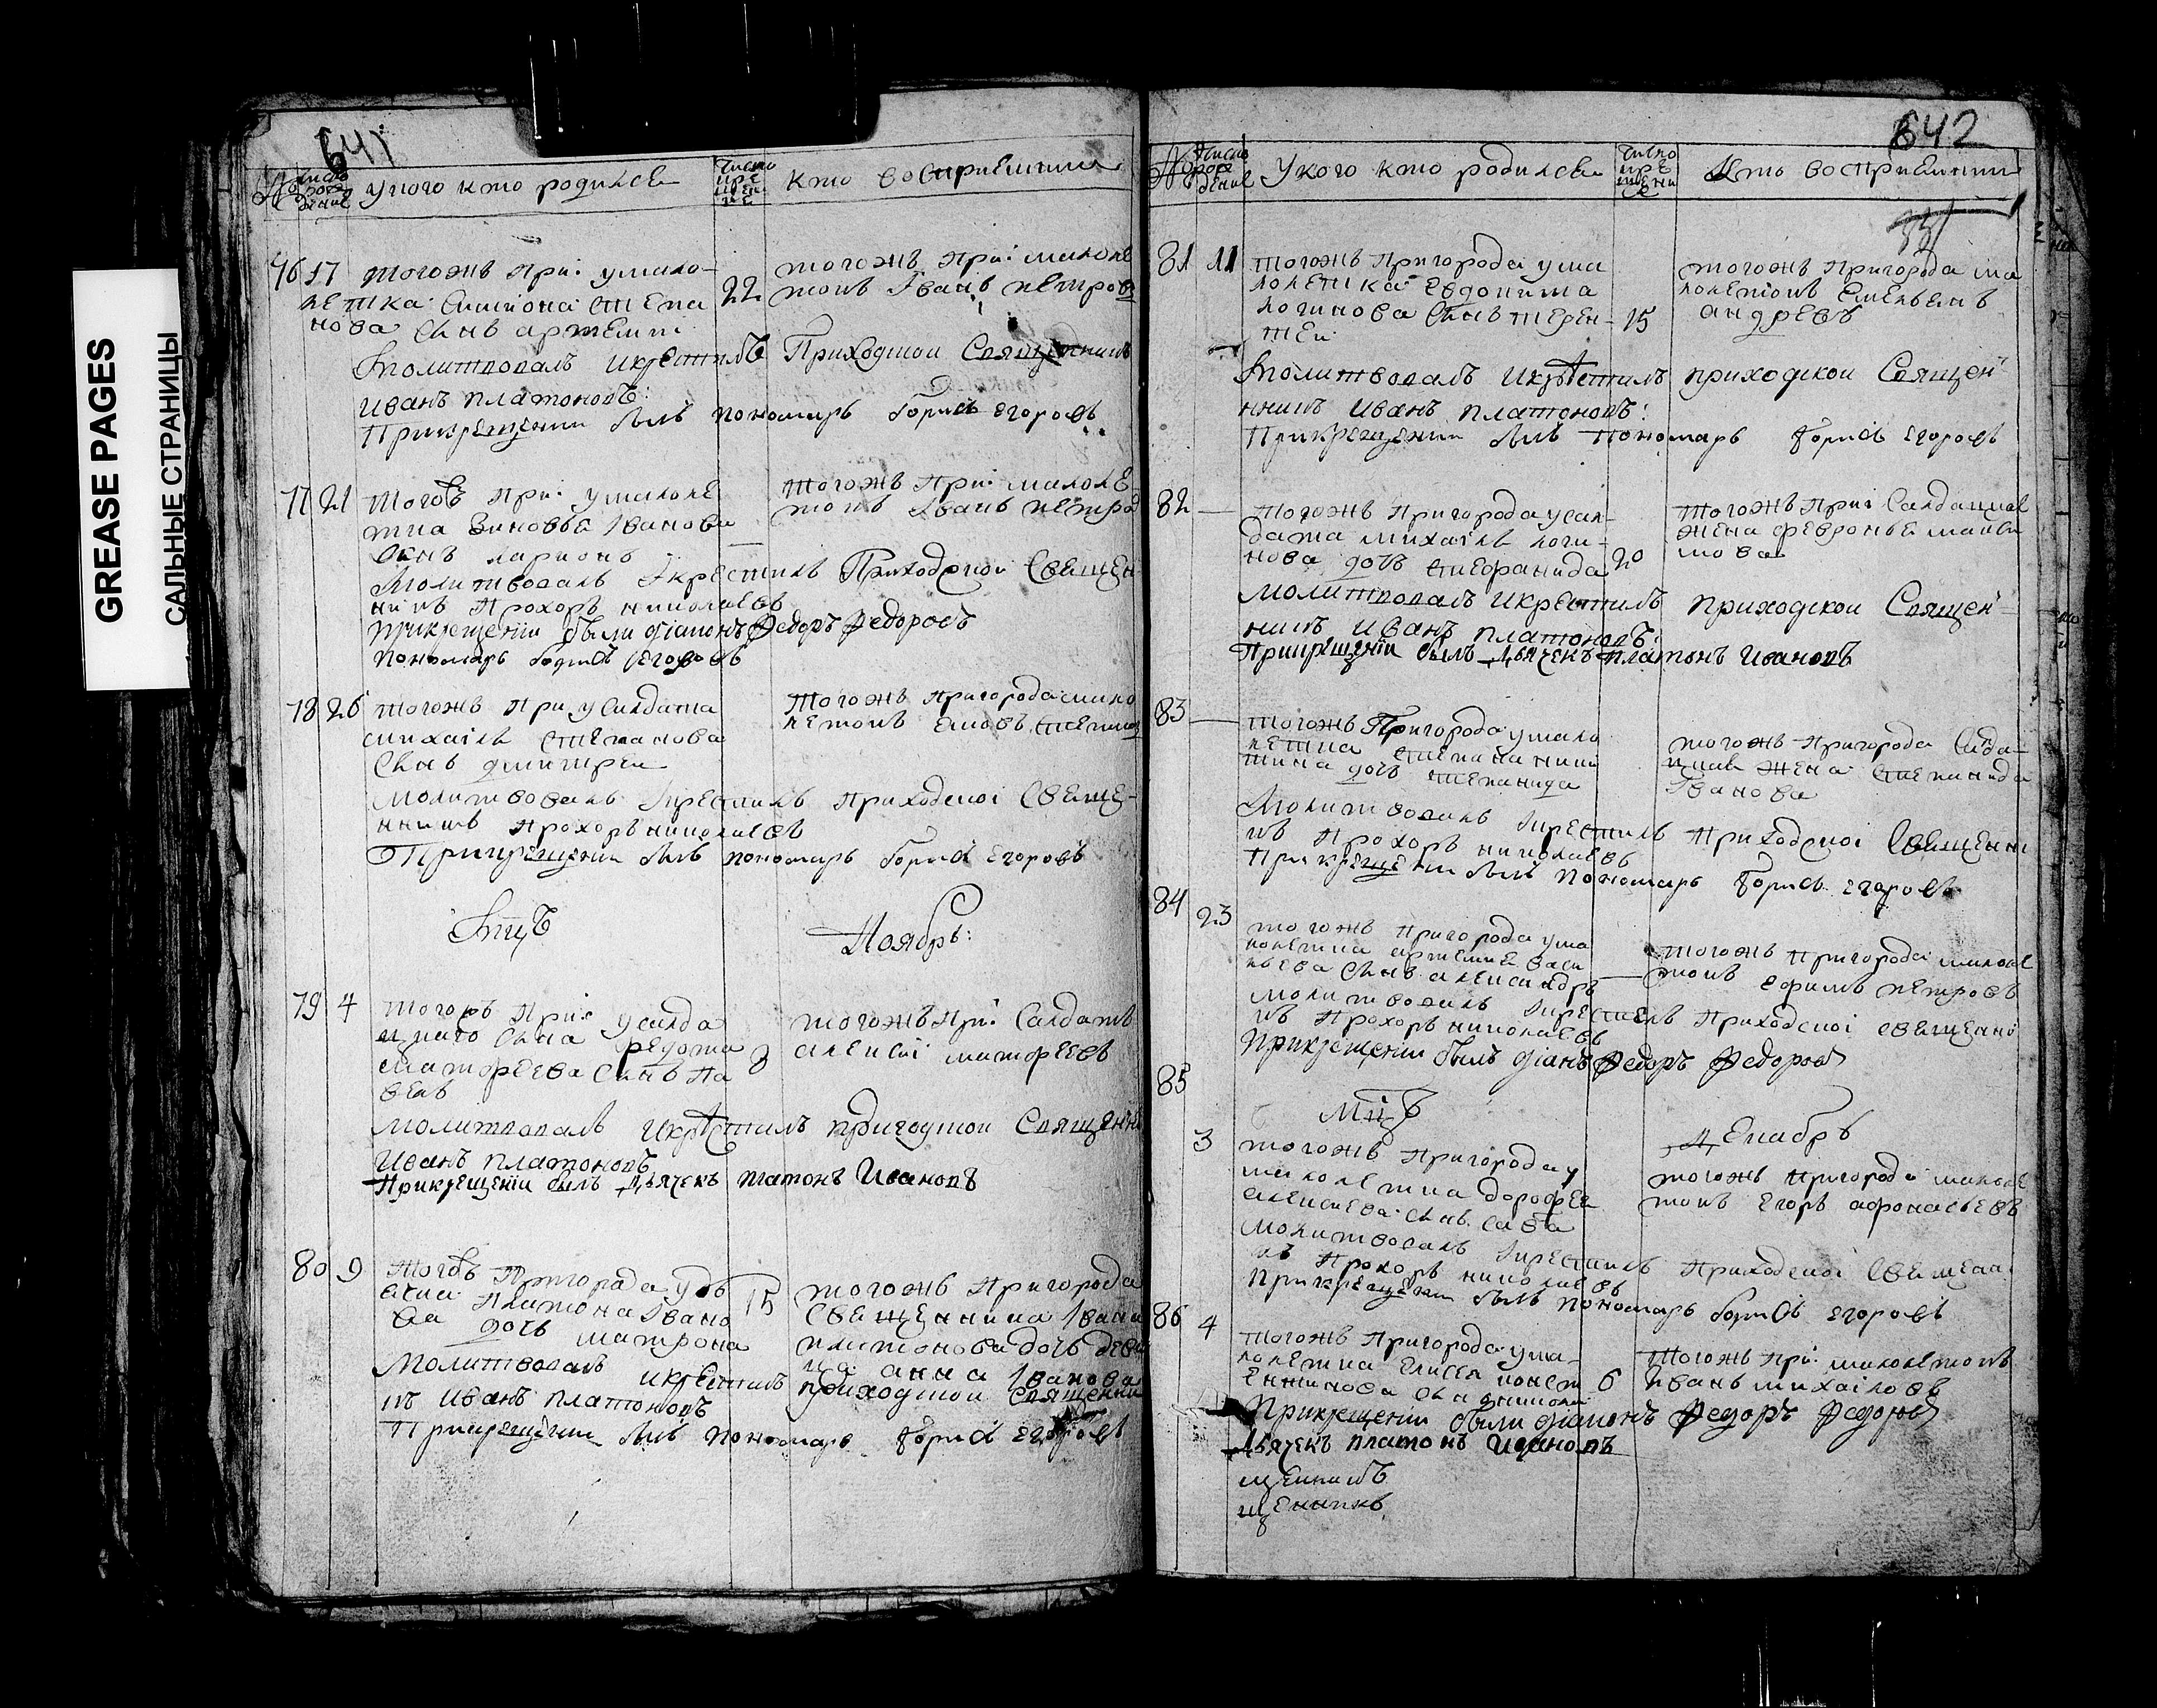 GREASE PAGES
САЛЬНЫЕ СТРАНИЦЫ
641
№
число рождение
у кого кто родился
число крещение
кто восприемники
76 17
тогожъ при: умало-
летка Симиона Степа
нова сынъ артемии
22
тогожъ при: малоле
токъ Iванъ петровъ
молитвовалъ икрестилъ приходскои Священникъ
иванъ платоновъ:
Прикрещении былъ пономарь борисъ егоровъ
77 21
тогожъ при: умалоле
тка Зиновье Iванова
сынъ ларионъ
тогожъ при: малоле
токъ Iванъ петровъ
Молитвовалъ Iкрестилъ Приходскои Свещен
никъ Прохоръ николаевъ
прикрещении были дiаконъ Федоръ Федоровъ
пономарь борисъ егоровъ
78 26
тогожъ при усалдата
михаилы степанова
сынъ дмитреи
тогожъ пригорода мало
летокъ
молитвовалъ Iкрестилъ приходскоi Свеще-
нникъ Прохоръ николаевъ
Прикрещении былъ пономарь борисъ егоровъ
Мцъ
Ноябрь:
79 4
тогожъ При: усалда
цкаго сына федота
матфеева сынъ па
велъ
8
тогожъ При: Салдатъ
алексеi матфеевъ
молитвовалъ икрѣстилъ приходскои Священни
Иванъ платоновъ
Прикрещенiи былъ Дьячекъ платонъ Ивановъ
80 9
тогожъ Пригорода удь
ячка Платона Iвано
ва дочь матрона
15
тогожъ Пригорода
Свещенника Iвана
платонова дочь деви
ца анна Iванова
Молитвовалъ икрестилъ приходскои Священни
къ Иванъ платоновъ
Прикрещении былъ пономарь борисъ егоровъ
642
№
число рождение
У кого кто родился
число крещени
Кто восприемники
81 11
тогожъ Пригорода ума
лолетка евдокима
логинова сынъ терен-
теи
15
тогожъ Пригорода ма
лолетокъ Емельянъ
андреевъ
молитвовалъ Икрѣстилъ приходскои Священ
никъ Иванъ платоновъ:
Прикрещении былъ пономарь борисъ егоровъ
82
тогожъ Пригорода усал-
дата михаилы логи-
нова дочь стефанида
20
тогожъ При: Салдацкая
жена февронья
молитвовалъ Икрестилъ приходскои Священ
никъ Иванъ платоновъ:
Прикрещенiи былъ Дьячекъ платонъ Ивановъ
83
тогожъ Пригорода умало
летка степана ники
тина дочь степанида
тогожъ Пригорода Салда
цкая жена степанида
Iванова
Молитвовалъ Iкрестилъ Приходскоi Свещенни
къ Прохоръ николаевъ
Прикрещении былъ пономарь борисъ егоровъ
84 23
тогожъ Пригорода ума
лолетка артемия васи
льева сынъ александръ
тогожъ Пригорода малоле
токъ ефимъ петровъ
Молитвовалъ Iкрестилъ Приходскоi свещенни
къ Прохоръ николаевъ
Прикрещении былъ дiаконъ Федоръ Федоровъ
85
Мцъ
Декабръ
3
тогожъ Пригорода у
малолетка дорофея
алексиева сынъ сава
тогожъ Пригорода малоле
токъ егоръ афонасьевъ
молитвовалъ Iкрестилъ Приходскоi Свещенни
къ Прохоръ николаевъ
Прикрещении былъ пономарь борисъ егоровъ
86 4
тогожъ Пригорода ума-
лолетка Елисея
6
тогожъ при: малолетокъ
Iванъ михаiловъ
Прикрещении были дiаконъ Федоръ Федоровъ
Дьячекъ платонъ Ивановъ
щенникъ
щенникъ